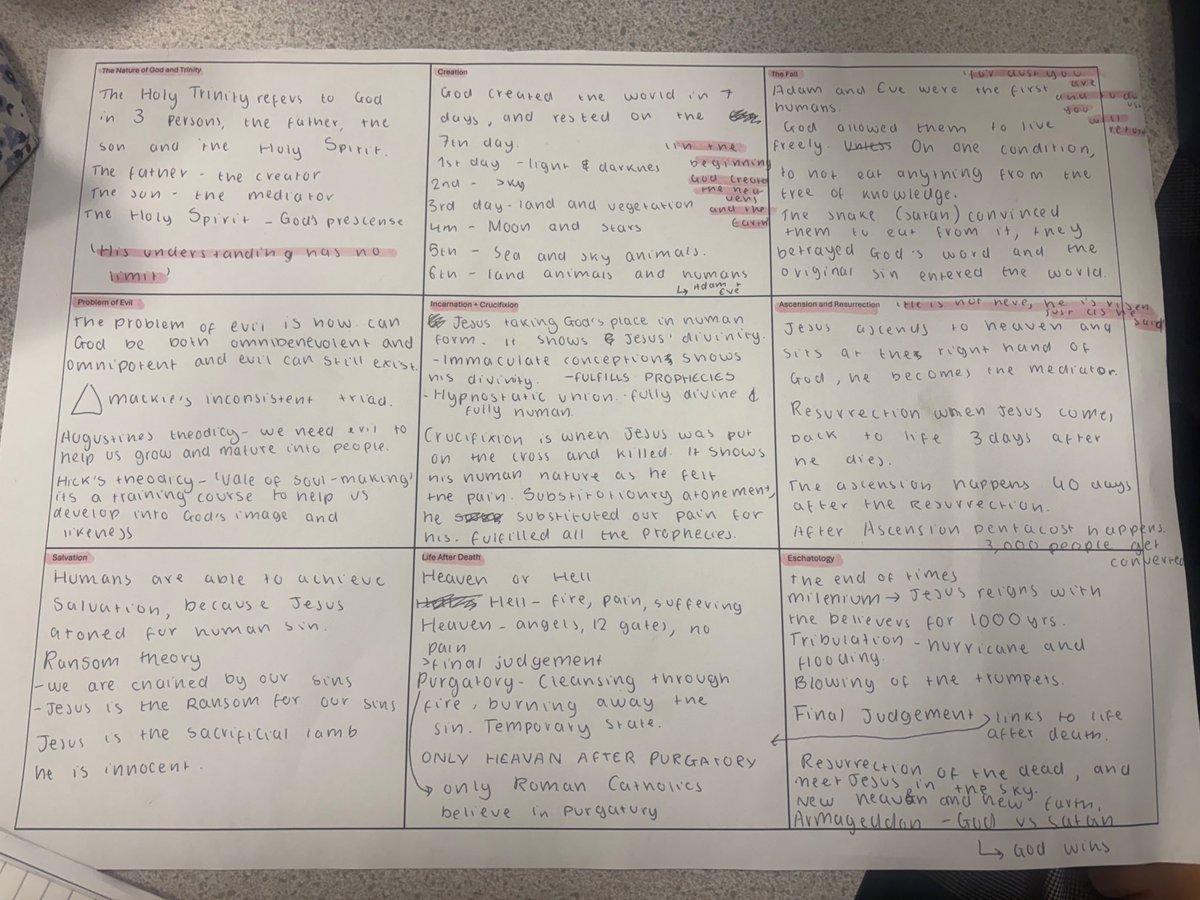 The Nature of God and Trinity
The Holy Trinity refers to God
in 3 persons, the father, the
son and the Holy Spirit.
The father - the creator
The son - the mediator
The Holy Spirit - God's prescense
'His understanding has no
limit'
Creation
God created the world in 7
days, and rested on the
7th day.
1st day - light & darknes
2nd - sky
3rd day - land and vegetation
4th - Moon and stars
5th - sea and sky animals.
6th - land animals and humans
↳ Adam + Eve
"in the
beginning
God created
the hea
vens
and the
Earth"
The Fall
'for dust you
are
and to dust
you will
return
Adam and Eve were the first
humans.
God allowed them to live
freely. Unless On one condition,
to not eat anything from the
tree of knowledge.
The snake (satan) convinced
them to eat from it, they
betrayed God's word and the
original sin entered the world.
Problem of Evil
The problem of evil is how can
God be both omnibenevolent and
omnipotent and evil can still exist.
Mackie's inconsistent triad.
Augustines theodicy - we need evil to
help us grow and mature into people.
Hick's theodicy - 'vale of soul-making'
its a training course to help us
develop into God's image and
likeness
Incarnation + Crucifixion
Jesus taking God's place in human
form. It shows Jesus' divinity.
- Immaculate conception shows
his divinity. - FULFILLS PROPHECIES
- Hypnostatic union - fully divine &
fully human.
Crucifixion is when Jesus was put
on the cross and killed. It shows
his human nature as he felt
the pain. Substitutionry atonement,
he substituted our pain for
his. fulfilled all the prophecies.
Ascension and Resurrection
'He is not here, he is risen
just as he said
Jesus ascends to heaven and
sits at the right hand of
God, he becomes the mediator.
Resurrection when Jesus comes
back to life 3 days after
he dies.
The ascension happens 40 days
after the Resurrection.
After Ascension pentacost happens.
3,000 people get
converted
Salvation
Humans are able to achieve
salvation, because Jesus
atoned for human sin.
Ransom theory
- we are chained by our sins
- Jesus is the Ransom for our sins
Jesus is the sacrificial lamb
he is innocent.
Life After Death
Heaven or Hell
Hell - fire, pain, suffering
Heaven - angels, 12 gates, no
pain
>final judgement
Purgatory - cleansing through
fire, burning away the
sin. Temporary state.
ONLY HEAVAN AFTER PURGATORY
→ only Roman Catholics
believe in Purgatury
Eschatology
the end of times
milenium → Jesus reigns with
the believers for 1000 yrs.
Tribulation - hurricane and
flooding.
Blowing of the trumpets.
Final Judgement > links to life
after death.
Resurrection of the dead, and
meet Jesus in the sky.
New heaven and new Earth.
Armageddon - God vs Satan
↳ God wins